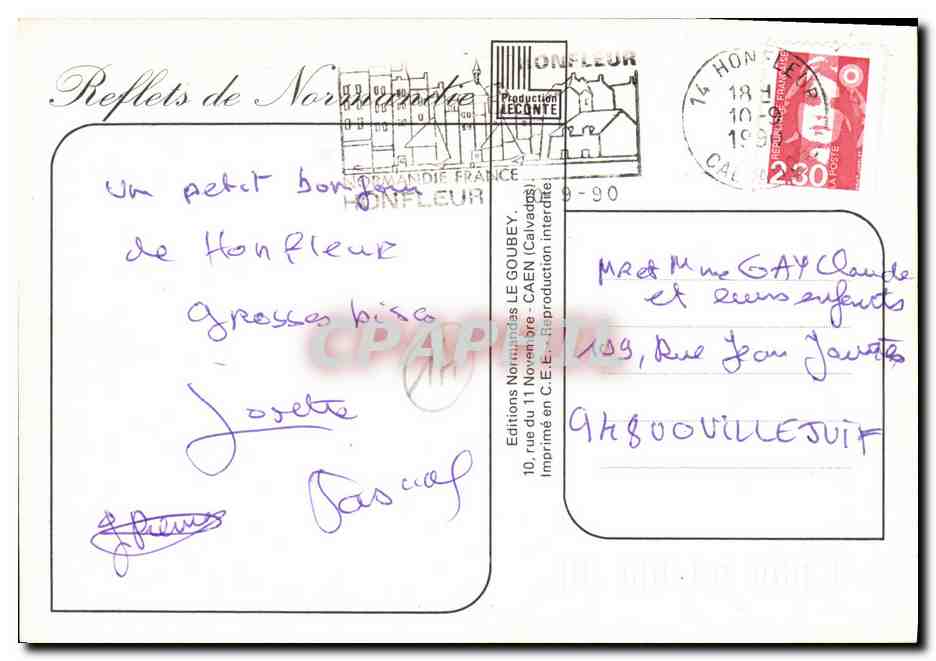 Reflets de Normandie
Production
LECONTE
HONFLEUR
NORMANDIE FRANCE
HONFLEUR 10-9-90
14 HONFLEUR
18H
10-9
199
CALVADOS
REPUBLIQUE FRANÇAISE
LA POSTE
2,30
un petit bonjour
de Honfleur
grosses bises
Josette
Pascal
J Pierre
Editions Normandes LE GOUBEY.
10, rue du 11 Novembre - CAEN (Calvados)
Imprimé en C.E.E. - Reproduction interdite
MR et Mme GAY Claude
et leurs enfants
109, Rue Jean Jaurès
94800 VILLEJUIF